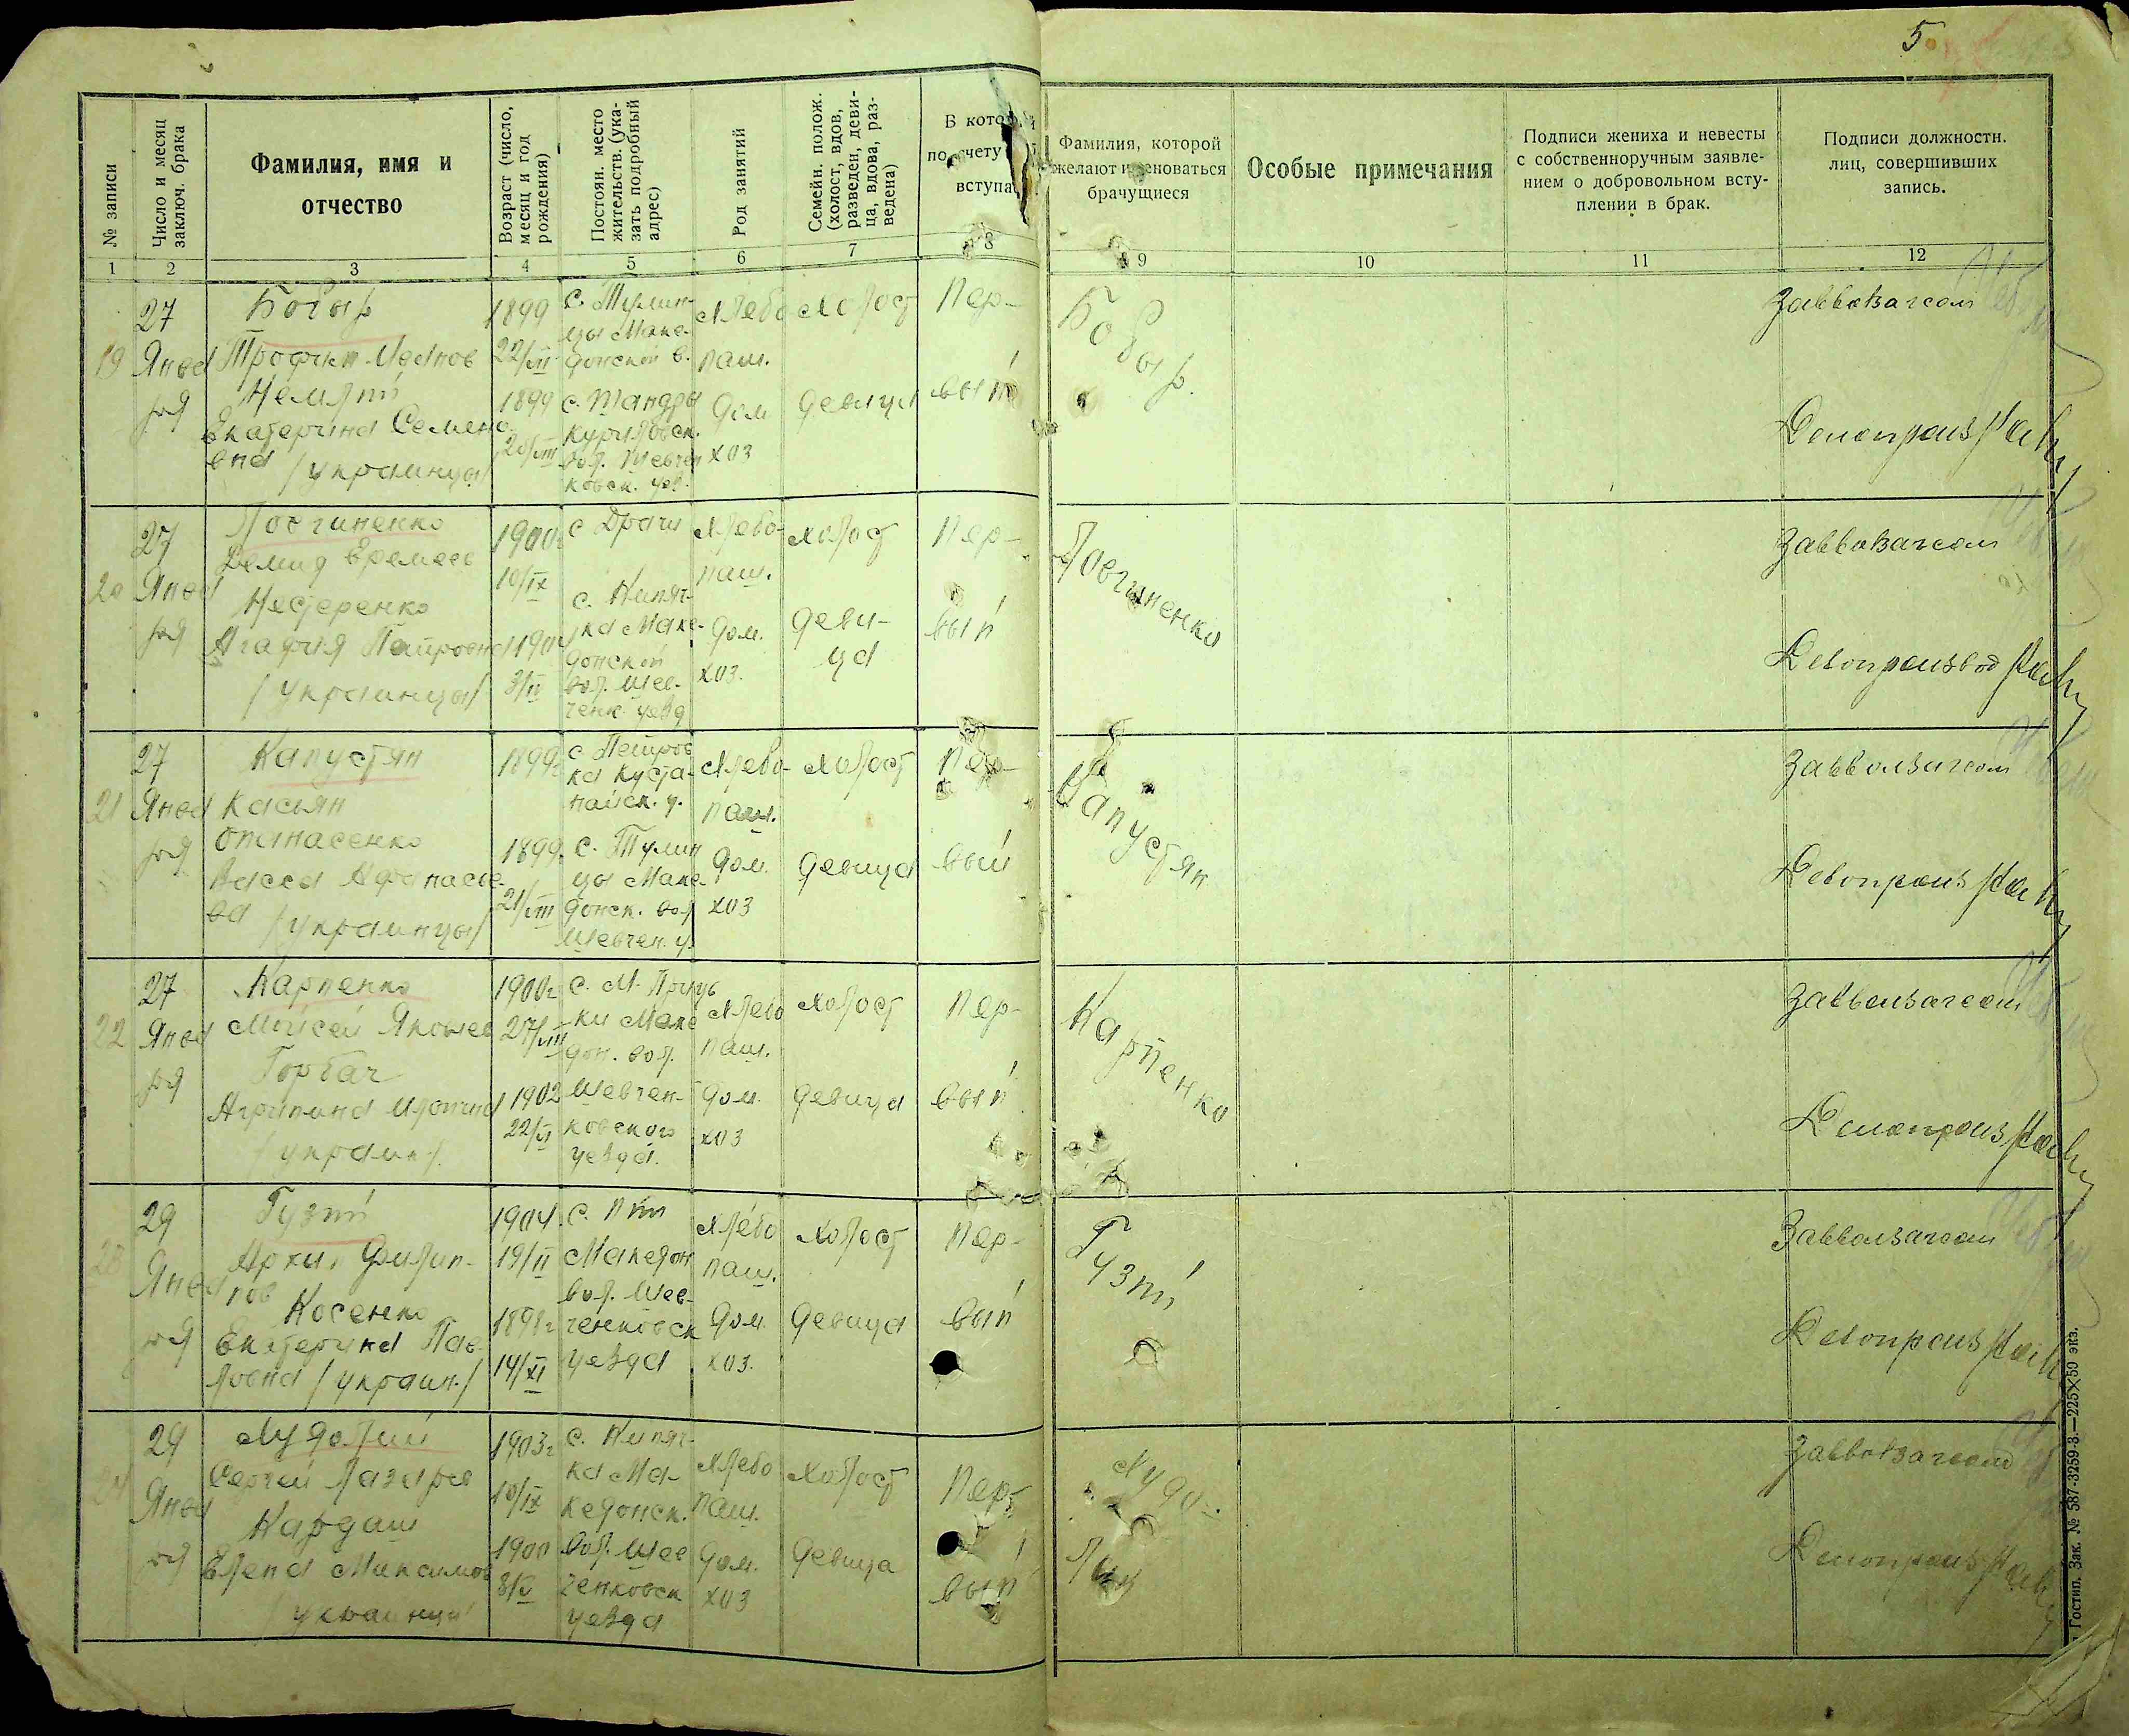 5
№ записи
Число и месяц
заключ. брака
Фамилия, имя и
отчество
Возраст (число,
месяц и год
рождения)
Постоян. место
жительств. (ука-
зать подробный
адрес)
Род занятий
Семейн. полож.
(холост, вдов,
разведен, деви-
ца, вдова, раз-
ведена)
В котор
по счету
вступа
Фамилия, которой
желают именоваться
брачущиеся
Особые примечания
Подписи жениха и невесты
с собственноручным заявле-
нием о добровольном всту-
плении в брак.
Подписи должностн.
лиц, совершивших
запись.
1 2 3 4 5 6 7 8 9 10 11 12
19
27
Янва
ря
Бобыр
Трофим
Екатерина Семено
вна /украинцы/
1899
22/VII
1899
20/VIII
с. Тулин-
цы Маке-
донской в.
с. Шандры
вол. Шевчен
ковск. уез.
Хлебо
паш.
Дом
хоз
Холост
девица
Пер-
вый
Бобыр.
Заввользагсом
20
27
Янва
ря
Довгиненко
Демид Еремеев
Нестеренко
Агафия Петровна
/украинцы/
1900г
10/IX
3/IV
с Драчи
с. Кипяч-
ка Маке-
донской
вол. Шев-
ченк. уезд
Хлебо-
паш.
Дом.
хоз.
холост
деви-
ца
Пер-
вый
Довгиненко
Заввользагсом
Делопроизвод
21
27
Янва
ря
Капустян
Касьян
Опанасенко
Васса Афанасье-
ва /украинцы/
1899г
1899г
21/VIII
с. Петров
ка Куста-
найск. у.
с. Тулин
цы Маке-
донск. вол
Шевчен. у.
Хлебо-
паш.
Дом.
хоз
холост
девица
Пер-
вый
Капустян
Заввользагсом
Делопроизв
22
27
Янва
ря
Карпенко
Мойсей Яковлев
Горбач
Агрипина
/украин./
1900г
27/VIII
1902
22/VI
с. М. Прицъ
ки Маке
дон. вол.
Шевчен-
ковского
уезда.
Хлебо
паш.
Дом.
хоз
холост
девица
Пер-
вый
Карпенко
Заввользагсом
Делопроизв
23
29
Янва
ря
Гузий
Архип Филип-
пов
Косенко
Екатерина Пав-
ловна /украин./
1904
19/II
1898г
14/XI
с. Пии
Македон
вол. Шев-
ченковск
уезда
Хлебо
паш.
Дом.
хоз.
холост
девица
Пер-
вый
Гузий
Заввользагсом
Делопроизв
24
29
Янва
ря
Худолий
Сергей Лазарев
Кардаш
Елена Максимов
/украинцы/
1903г
10/IX
1900
с. Кипяч-
ка Ма-
кедонск.
вол. Шев
ченковск
уезда
Хлебо
паш.
Дом.
хоз
Холост
девица
Пер-
вый
Худо-
лий
Заввользагсом
Делопроизв
Гостип. Зак. № 587-3259-3.—225×50 экз.